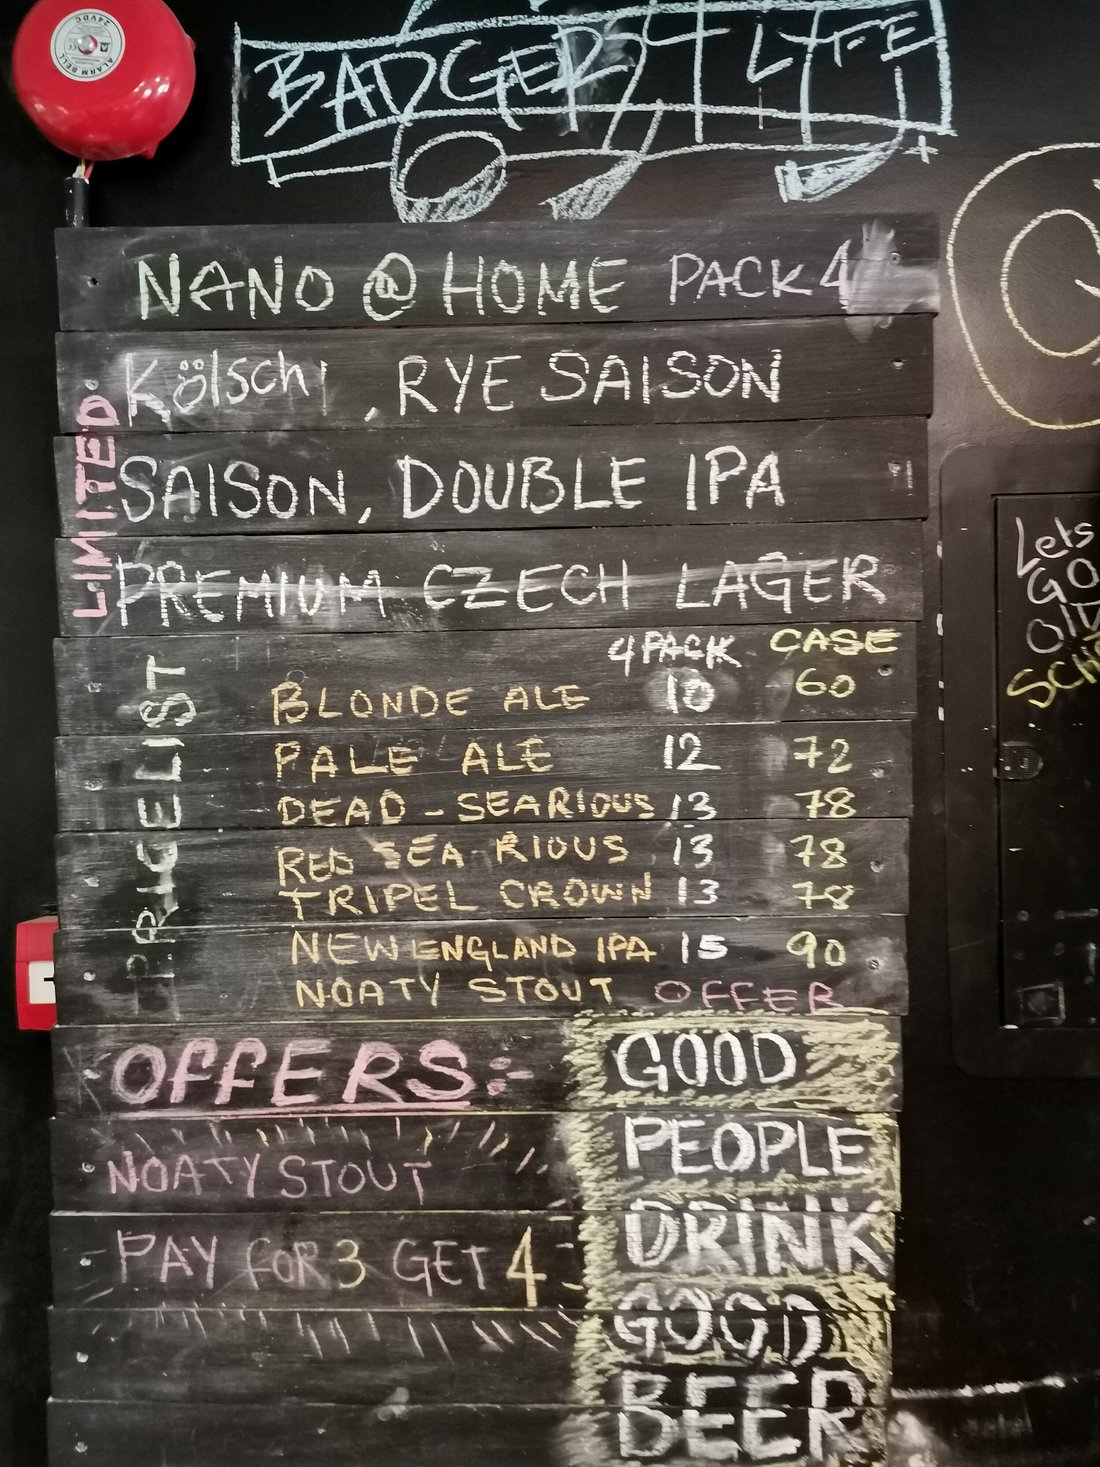 ALARM BELL
24VDC
BADGER 4 LIFE
NANO @ HOME PACK 4
LIMITED
Kölsch, RYE SAISON
SAISON, DOUBLE IPA
PREMIUM CZECH LAGER
PRICE LIST
4 PACK CASE
BLONDE ALE 10 60
PALE ALE 12 72
DEAD - SEARIOUS 13 78
RED SEA-RIOUS 13 78
TRIPEL CROWN 13 78
NEW ENGLAND IPA 15 90
NOATY STOUT OFFER
OFFERS:-
NOATY STOUT
PAY FOR 3 GET 4
GOOD
PEOPLE
DRINK
GOOD
BEER
Lets
GO